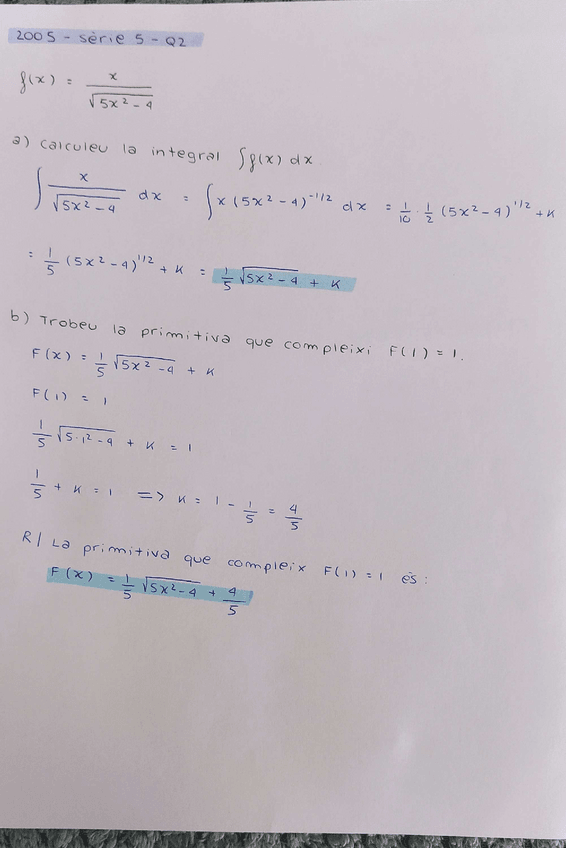 2005 - sèrie 5 - Q2
f(x) = x / √(5x² - 4)
a) Calculeu la integral ∫f(x) dx
∫ x / √(5x² - 4) dx = ∫ x (5x² - 4)^(-1/2) dx = 1/10 · 1/2 (5x² - 4)^(1/2) + K
= 1/5 (5x² - 4)^(1/2) + K = 1/5 √(5x² - 4) + K
b) Trobeu la primitiva que compleixi F(1) = 1.
F(x) = 1/5 √(5x² - 4) + K
F(1) = 1
1/5 √(5·1² - 4) + K = 1
1/5 + K = 1 => K = 1 - 1/5 = 4/5
R/ La primitiva que compleix F(1) = 1 és:
F(x) = 1/5 √(5x² - 4) + 4/5